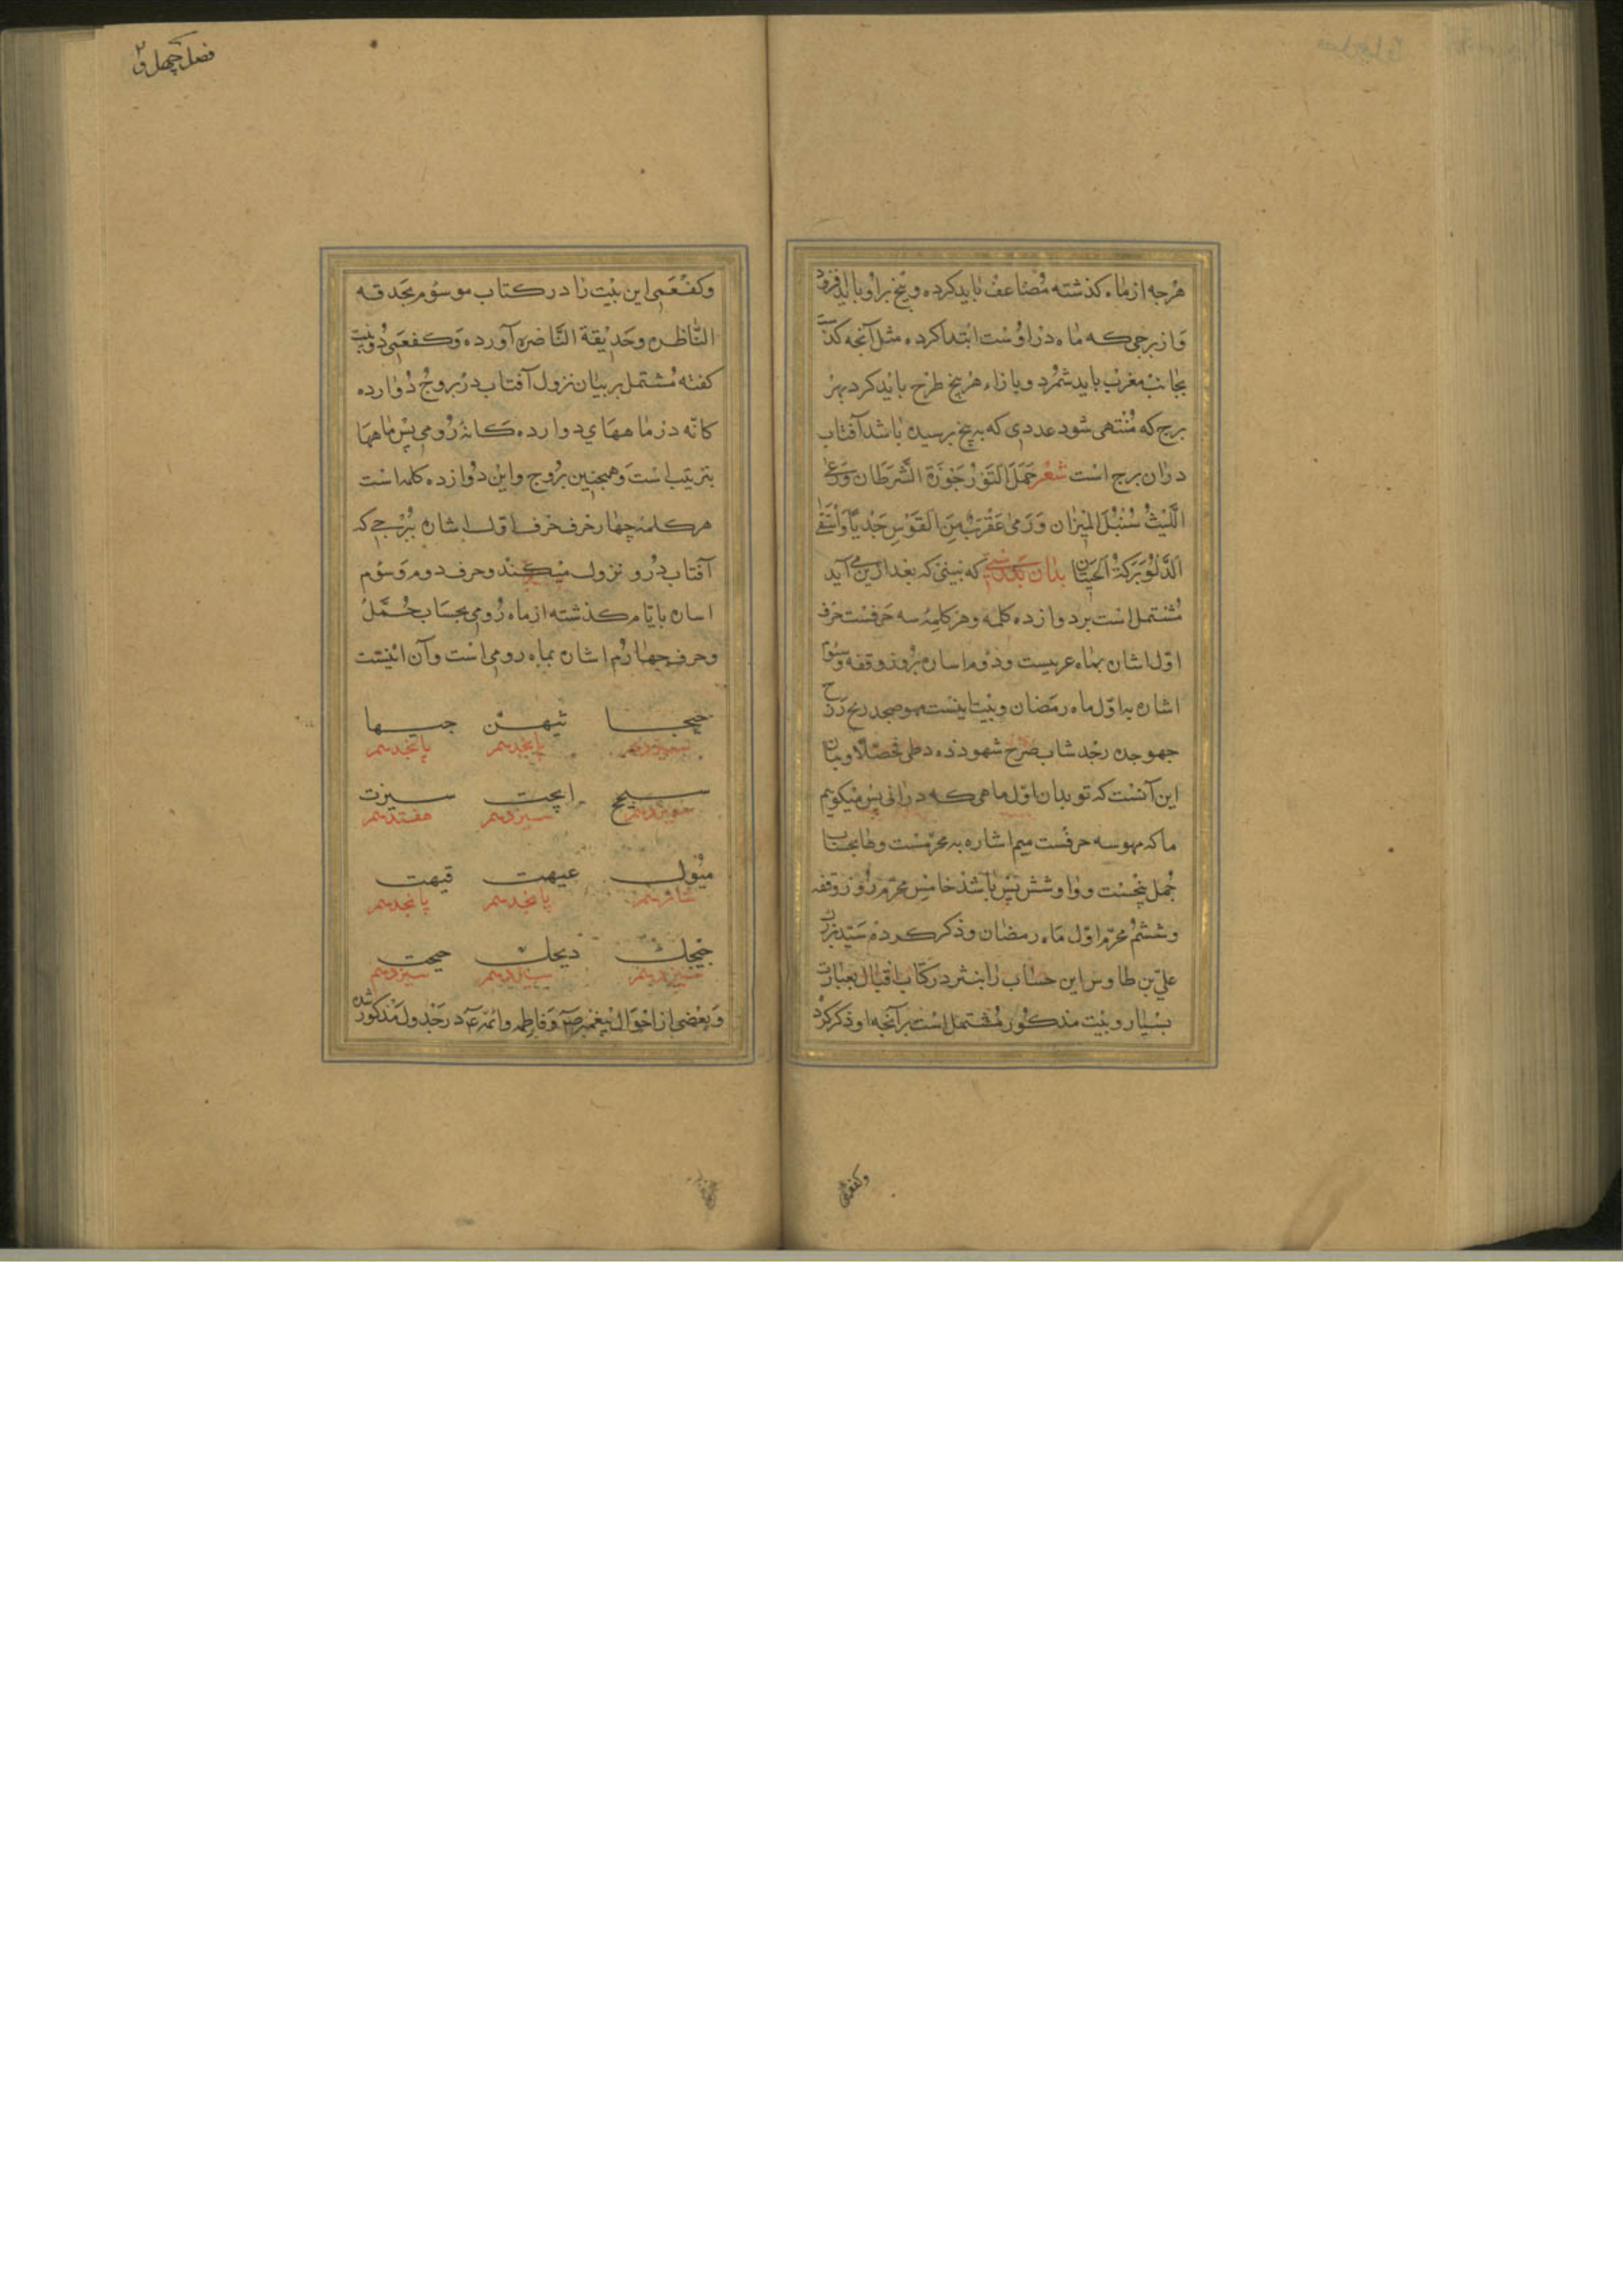 هرجه از ماه کذشته مضاعف باید کرده و پنج براو باید افزود
و از برجی که ماه در اوست ابتدا کرده مثل آنجه کذشت
بجانب مغرب باید شمرد و بازاء هر پنج طرح باید کرد بهر
برج که منتهی شود عددی که به پنج نرسیده باشد آفتاب
در ان برج است شعر حمل الثور جوزة السرطان ورعی
اللیث سنبل المیزان ورمی عقرب من القوس جدیا واستقی
الدلو برکة الحیتان بدان که بیتی که بعد ازین می آید
مشتمل است بر دوازده کلمه و هر کلمه سه حرفست حرف
اول اشاره بماه عربیست و دوم اشاره بروز وقفه و سوم
اشاره به اول ماه رمضان و بیت اینست
این آنست که تو بدان اول ماهی که درانی پس میکویم
ما که مهو سه حرفست میم اشاره به محرمست وها بحساب
جمل پنجست و واو شش پس باشد خامس محرم روز وقفه
و ششم محرم اول ماه رمضان و ذکر کرده سید بزرک
علی بن طاوس این حساب را بنثر در کتاب اقبال بعبارت
بسیار و بیت مذکور مشتمل است بر آنجه او ذکر کرد
وکفعمی
فصل چهل و۲
وکفعمی این بیت را در کتاب موسوم بحدقه
الناظره وحدیقة الناضره آورده وکفعمی دو بیت
کفته مشتمل بر بیان نزول آفتاب در بروج دوازده
کانه در ماههای دوازده کانه رومی پس ماهها
بترتیب است و همچنین بروج و این دوازده کلمه است
هر کلمه چهار حرف حرف اول اشاره ببرجی که
آفتاب درو نزول میکند و حرف دوم و سوم
اشاره بایام کذشته از ماه رومی بحساب جمل
وحرف چهارم اشاره بماه رومی است وآن اینست
حیجا ثیهن جیها
سیزدهم پانجدهم پانجدهم
سیح ایجت سیزت
سیزدهم هفتدهم
میول عیهت قیهت
شانزدهم پانجدهم پانجدهم
جیجك دیجك حیجت
سیزدهم سیزدهم سیزدهم
وبعضی از احوال پیغمبر ص وفاطمه وائمه ع در جدول مذکور شده